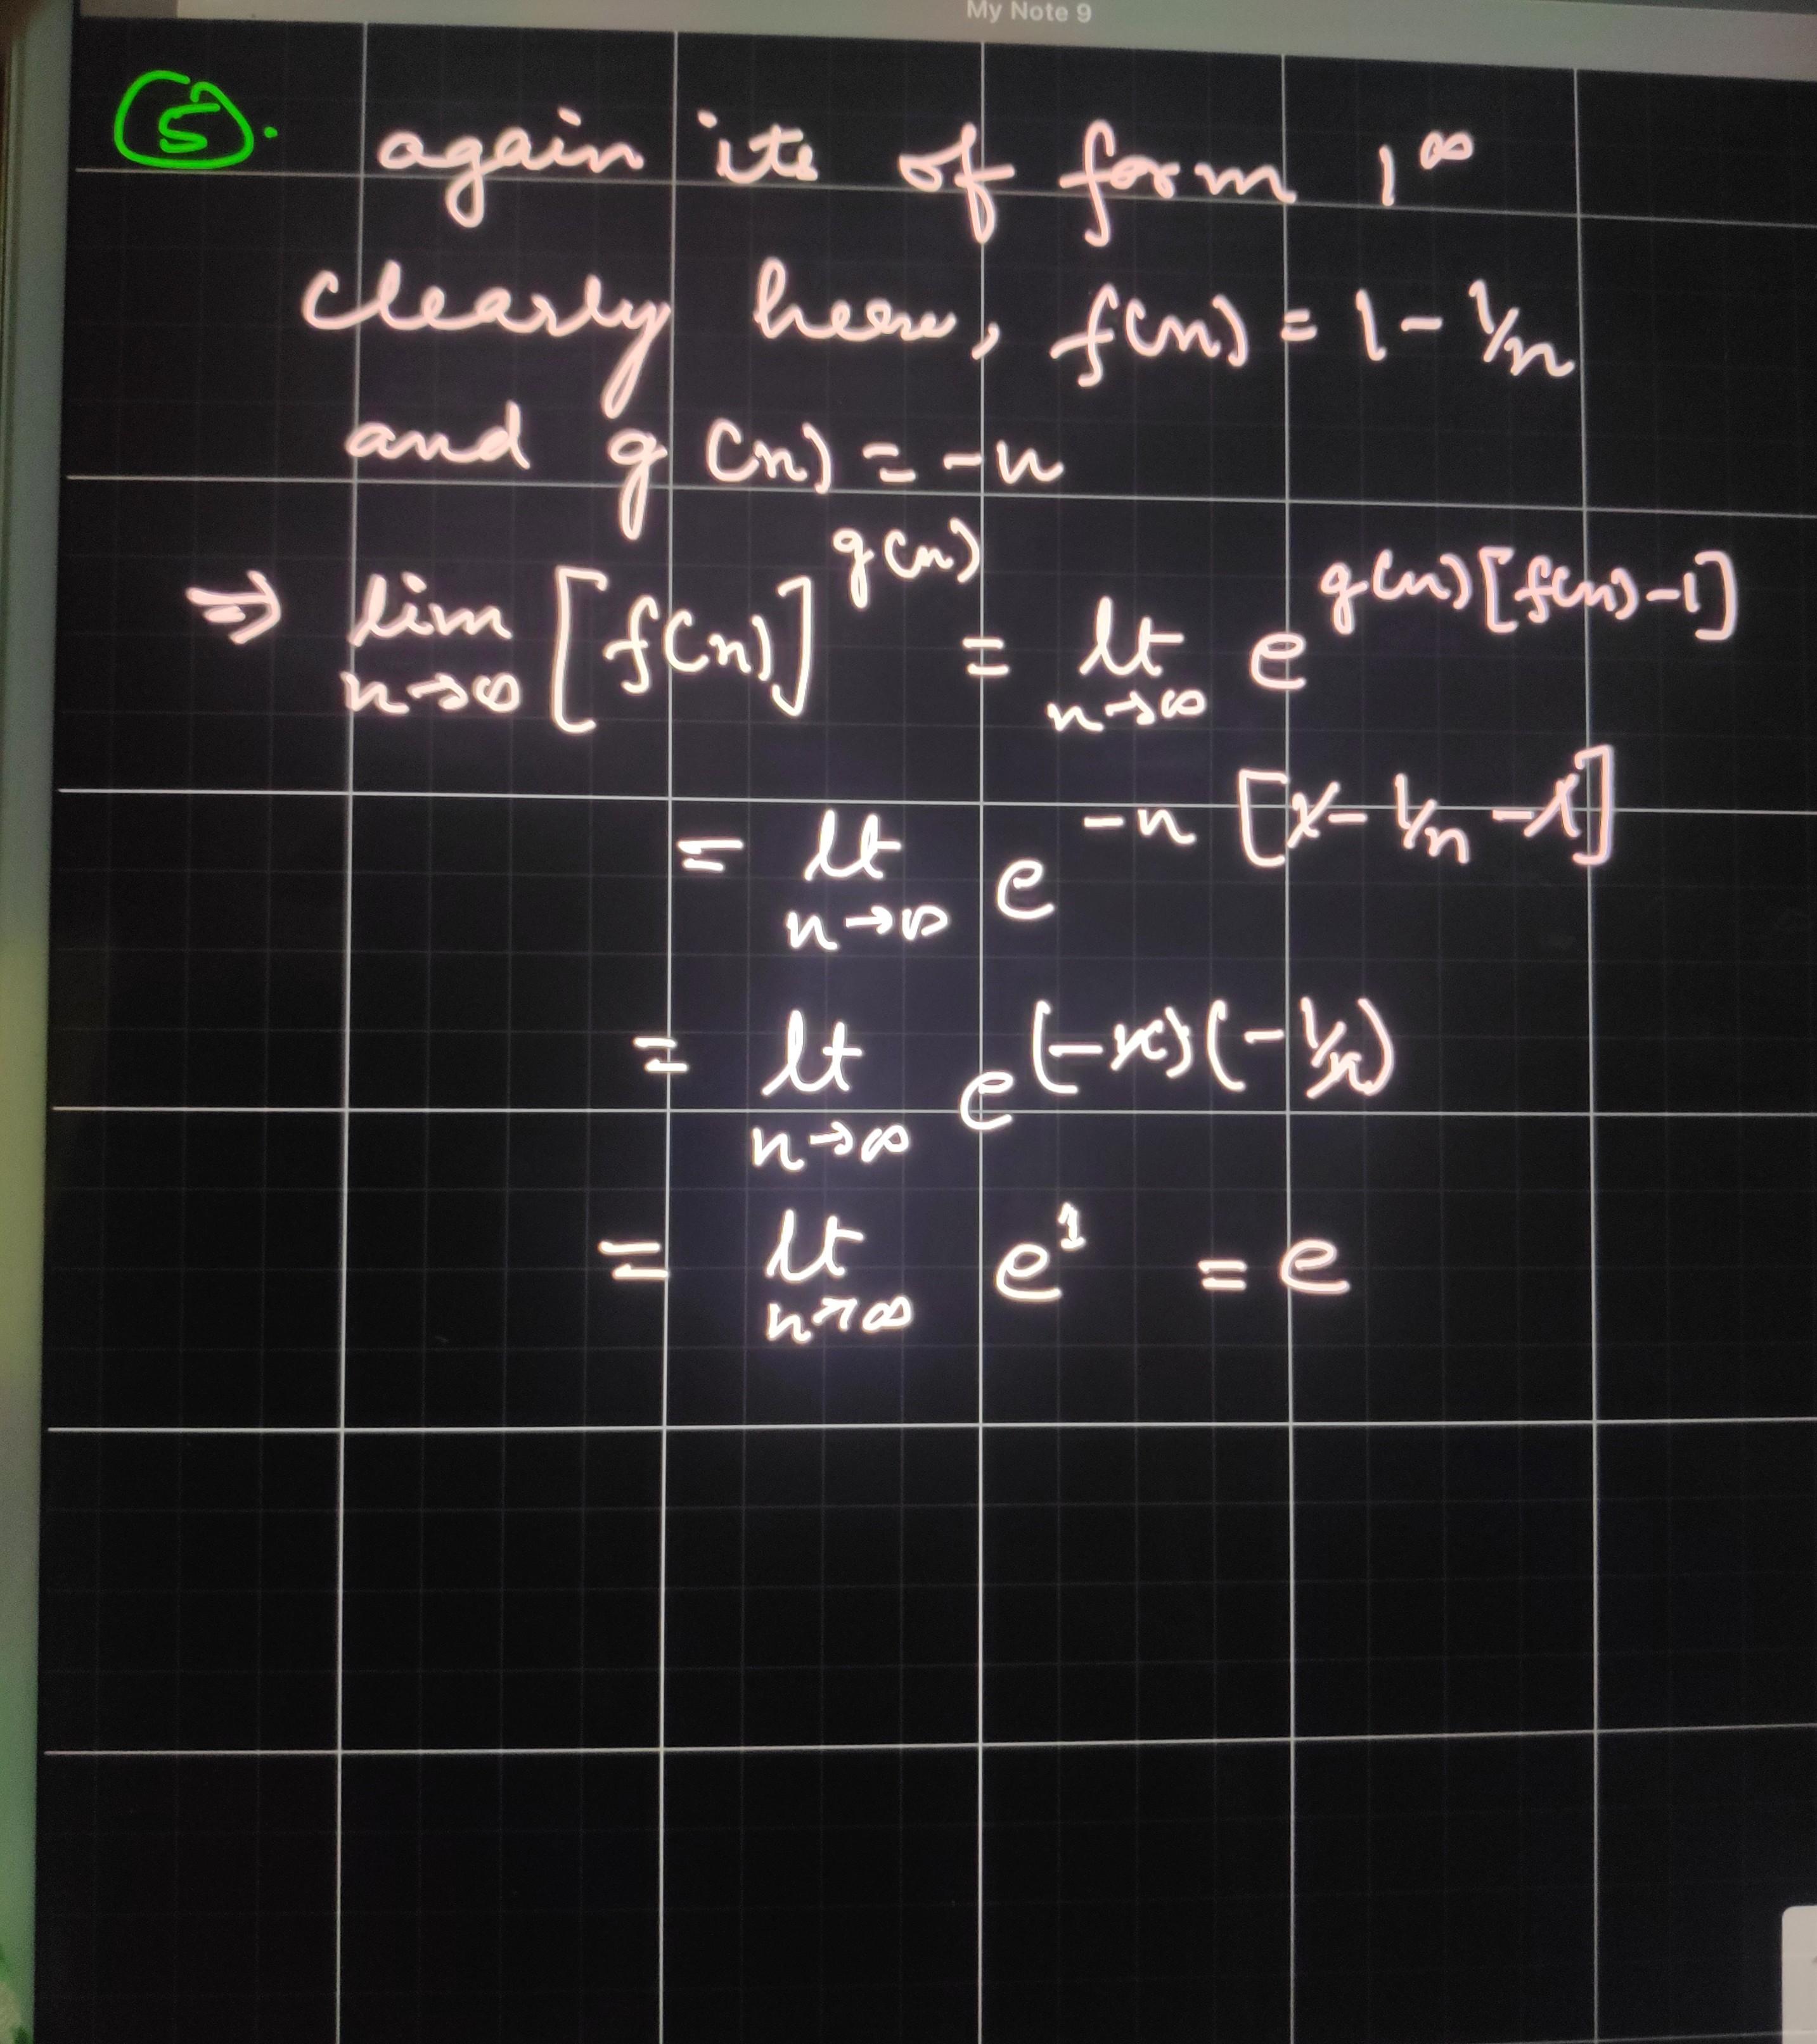 My Note 9
5. again its of form 1^∞
clearly here, f(n) = 1 - 1/n
and g(n) = -n
⇒ lim n→∞ [f(n)]^g(n) = lt n→∞ e^g(n)[f(n)-1]
= lt n→∞ e^-n [1 - 1/n - 1]
= lt n→∞ e^(-n)(-1/n)
= lt n→∞ e^1 = e